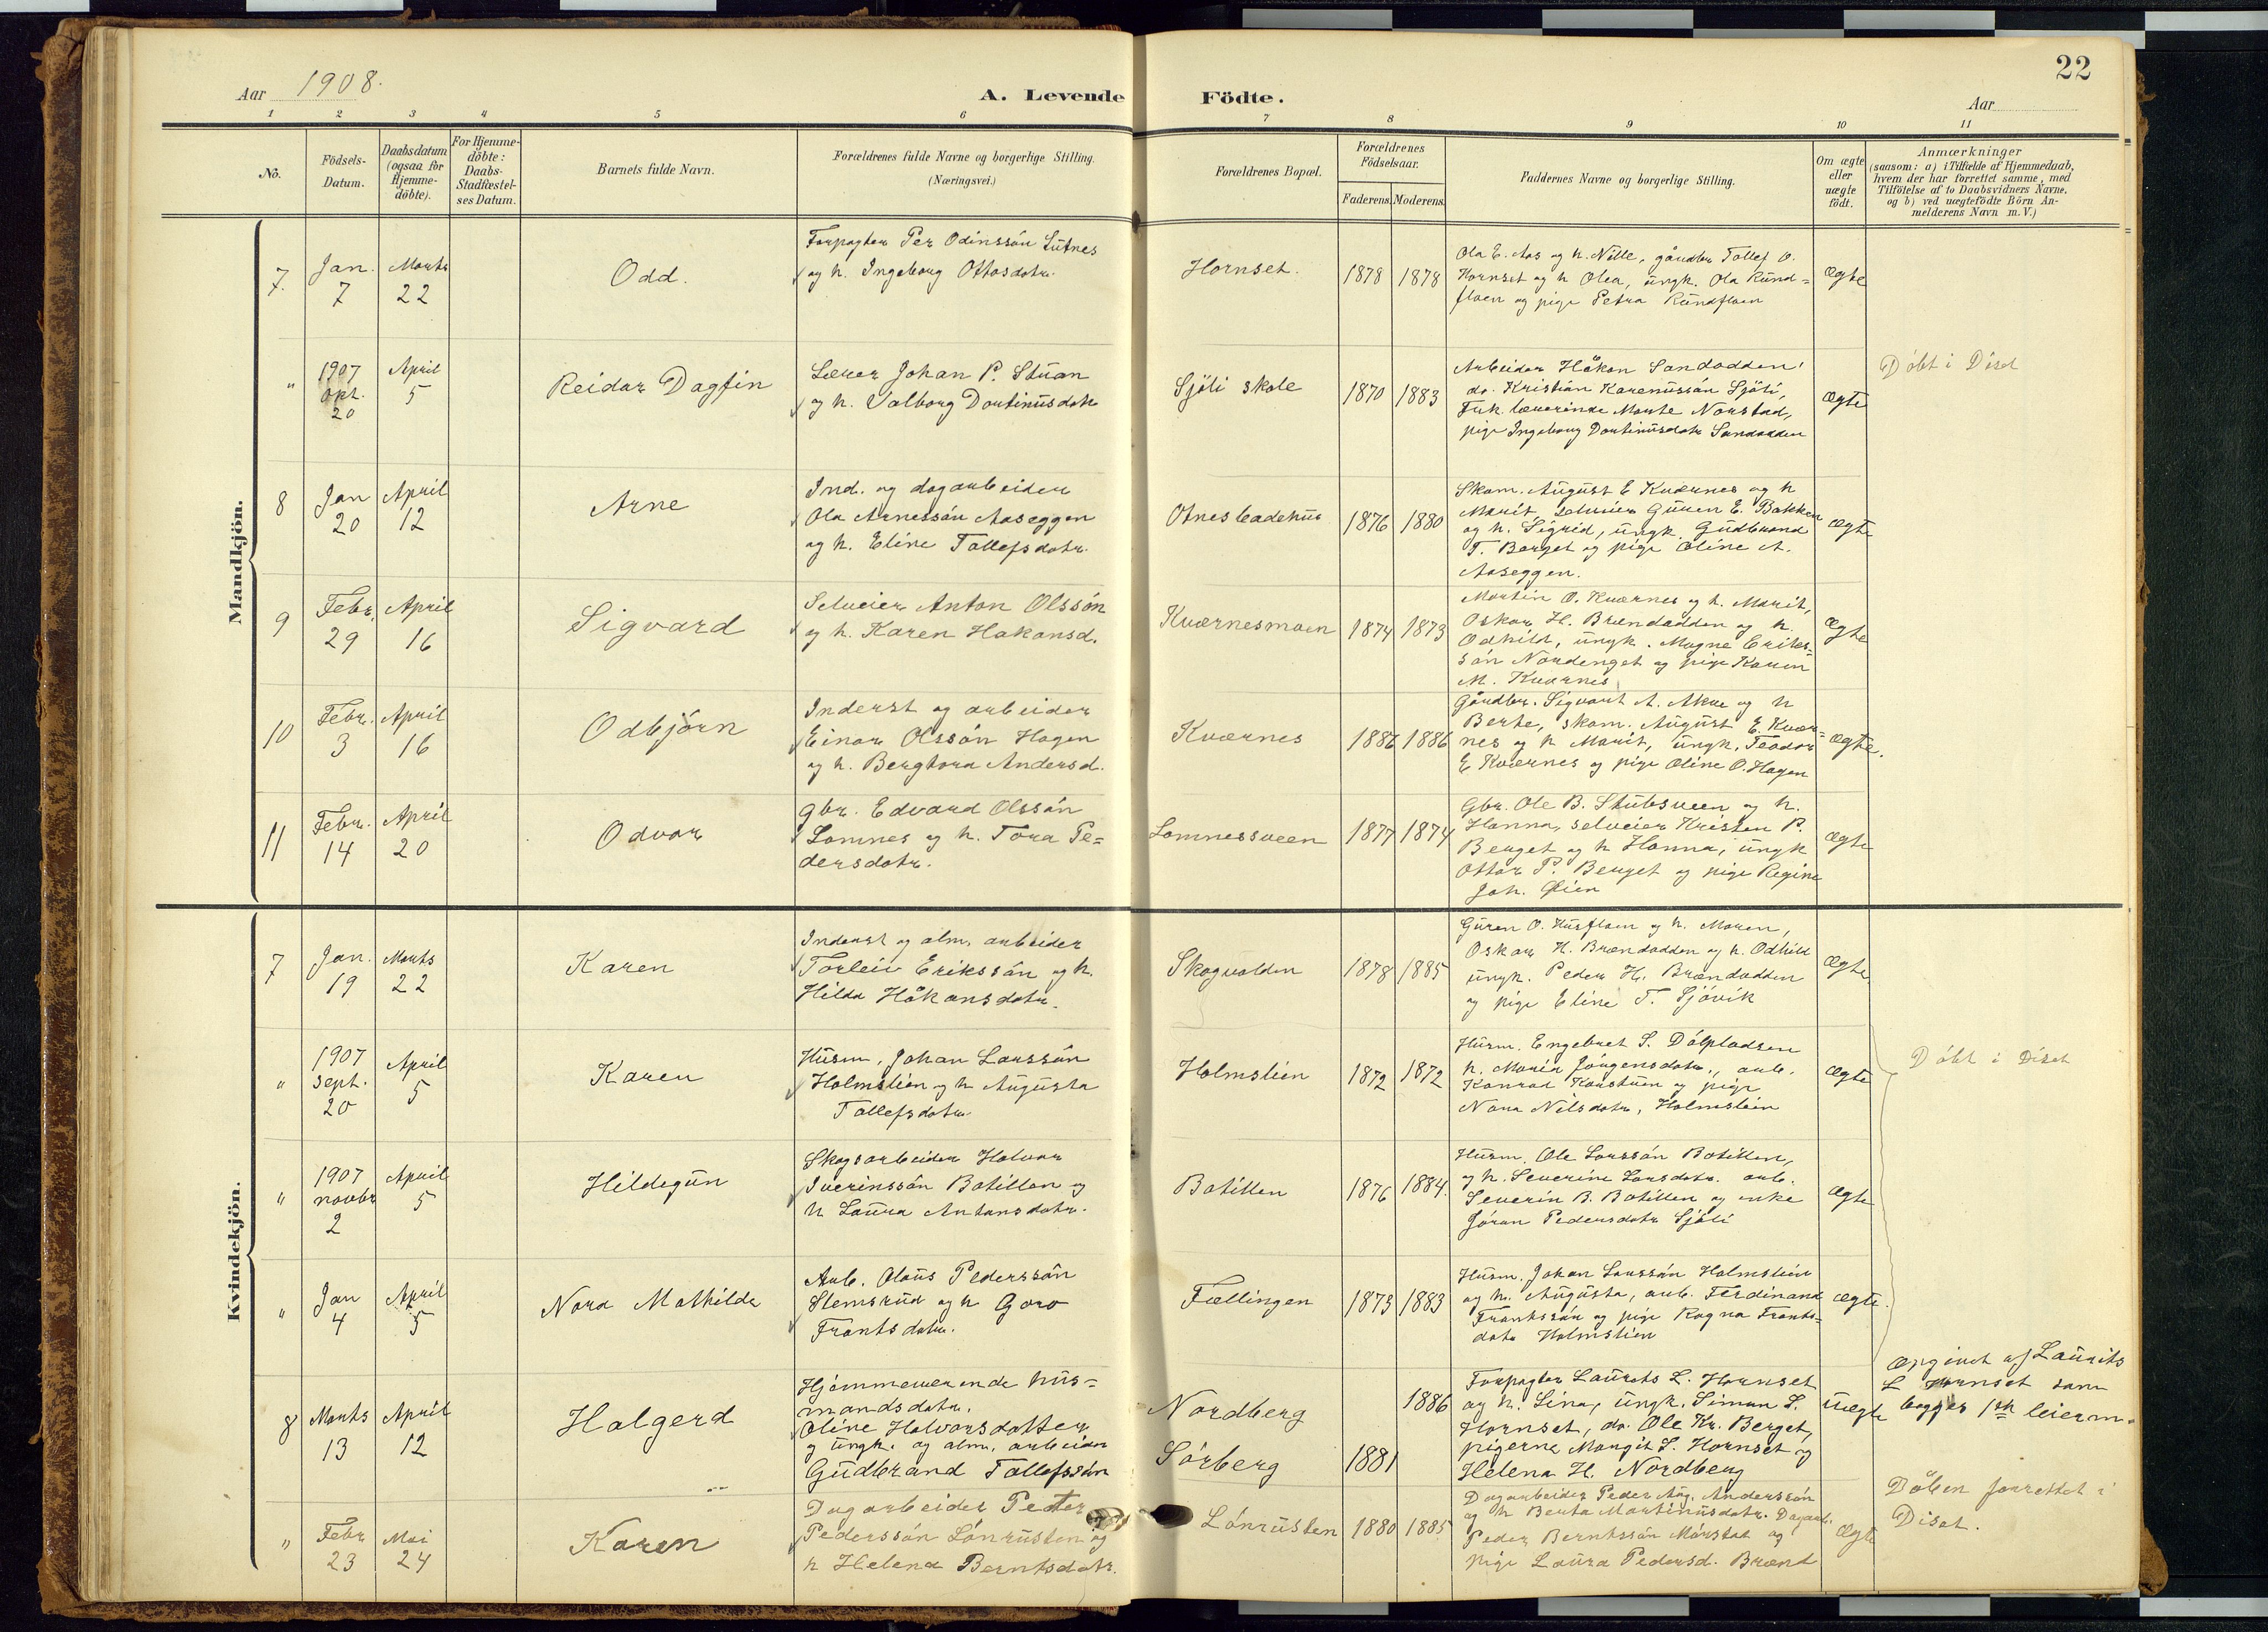 22
Aar 1908.
A. Levende Födte.
Aar
1 2 3 4 5 6 7 8 9 10 11
No.
Födsels-
Datum.
Daabsdatum
(ogsaa for
Hjemme-
döbte).
For Hjemme-
döbte:
Daabs-
Stadfæstel-
ses Datum.
Barnets fulde Navn.
Forældrenes fulde Navne og borgerlige Stilling.
(Næringsvei.)
Forældrenes Bopæl.
Forældrenes
Födselsaar.
Faderens. Moderens.
Faddernes Navne og borgerlige Stilling.
Om ægte
eller
uægte
födt.
Anmærkninger
(saasom: a) i Tilfælde af Hjemmedaab,
hvem der har forrettet samme, med
Tilföielse af to Daabsvidners Navne,
og b) ved uægtefödte Börn An-
melderens Navn m. V.)
Mandkjön.
7.
Jan.
7
Marts
22
Odd.
Forpagter Per Odinssön Lutnes
og h. Ingeborg Ottosdotr.
Hornset.
1878 1878
Ola E. Aas og h. Nille, gårdbr Tollef O.
Hornset og h Olea, ungk. Ola Rund=
floen og pige Petra Rundfloen
ægte
"
1907
Okt.
20
April
5
Reidar Dagfin
Lærer Johan P. Stuan
og h. Valborg Dortinusdotr
Sjöli skole
1870 1883
Arbeider Håkon Sandodden,
do. Kristian Karenussön Sjöli,
Frk. lærerinde Marte Norstad,
pige Ingeborg Dortinusdotr Sandodden
ægte
Döbt i Diset
8
Jan
20
April
12
Arne
Ind. og dagarbeider
Ola Arnessön Aaseggen
og h. Eline Tollefsdotr.
Otnesladehus
1876 1880
Skom. August E Kværnes og h
Marit, selveier Guren E. Bakken
og h. Sigrid, ungk. Gudbrand
T. Berget og pige Oline A.
Aaseggen.
ægte
9
Febr.
29
April
16
Sigvard
Selveier Anton Olssön
og h. Karen Hakonsd.
Kværnesmoen
1874 1873
Martin O. Kværnes og h. Marit,
Oskar H. Brændodden og h.
Odhild, ungk. Magne Eriks=
sön Nordenget og pige Karen
M. Kværnes
ægte
10
Febr.
3
April
16
Odbjörn
Inderst og arbeider
Einar Olssön Hagen
og h. Bergtora Andersd.
Kværnes
1886 1886
Gårdbr. Sigvart A. Akre og h
Berte, skom. August E. Kvær=
nes og h Marit, ungk. Teodor
E Kværnes og pige Oline O. Hagen
ægte.
11
Febr.
14
April
20
Odvar
gbr. Edvard Olssön
Lomnes og h. Tora Pe=
dersdotr.
Lomnessveen
1877 1874
Gbr. Ole B. Stubsveen og h.
Hanna, selveier Kristen P.
Berget og h Hanna, ungk
Ottar P. Berget og pige Regine
Joh. Öien
ægte
Kvindekjön.
7
Jan.
19
Marts
22
Karen
Inderst og alm. arbeider
Torleiv Erikssön og h.
Hilda Håkonsdotr.
Skogvolden
1878 1885
Guren O. Husfloen og h. Maren,
Oskar H. Brændodden og h. Odhild
ungk. Peder H. Brændodden
og pige Eline T. Sjövik
ægte
"
1907
Sept.
20
April
5
Karen
Husm. Johan Larssön
Holmslien og h Augusta
Tollefsdotr.
Holmslien
1872 1872
Husm. Engebret S. Dölpladsen
h. Maria Jörgensdotr., arb.
Konrad og pige
Nora Nilsdotr, Holmslien
ægte
Döbt i Diset
"
1907
novbr
2
April
5
Hildegun
Skogsarbeider Halvor
Iverinssön Botillen og
h Laura Antonsdotr.
Botillen
1876 1884.
Husm. Ole Larssön Botillen,
og h. Severine Larsdotr. arb.
Severin B. Botillen og enke
Jöran Pedersdotr Sjöli
ægte
"
Jan
4
April
5
Nora Mathilde
Arb. Olaus Pederssön
Stemsrud og h Goro
Frantsdotr.
Fællingen
1873 1883
Husm. Johan Larssön Holmslien
og h. Augusta, arb. Ferdinand
Frantssön og pige Ragna Frants=
dotr Holmslien
ægte.
8
Marts
13
April
12
Halgerd
Hjemmeværende hus=
mandsdotr.
Oline Halvorsdotter
og ungk. og alm. arbeider
Gudbrand Tollefssön
Nordberg
Sörberg
1886
1881
Forpagter Laurits L. Hornset
og h. Lina, ungk. Simen L.
Hornset, do. Ole Kr. Berget,
pigerne Margit L. Hornset og
Helena H. Nordberg
uægte
Opgivet af Laurits
L Hornset som
begges 1ste leierm.
"
Febr
23
Mai
24
Karen
Dagarbeider Peder
Pederssön Lönrusten og
h Helena Berntsdotr.
Lönrusten
1880 1885
Dagarbeider Peder Aug. Anderssön
og h Berta Martinusdotr. Dagarb.
Peder Berntssön Mörstad og
pige Laura Pedersd. Brænd
ægte
Dåben forrettet i
Diset.